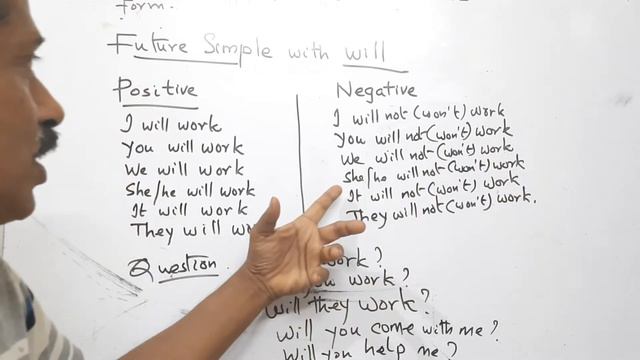 form.
Future Simple with will
Positive
I will work
You will work
We will work
She/he will work
It will work
They will
Negative
I will not (won't) work
You will not (won't) work
We will not (won't) work
She/he will not (won't) work
It will not (won't) work
They will not (won't) work.
Question
work?
you work?
Will they work?
Will you come with me?
Will you help me?